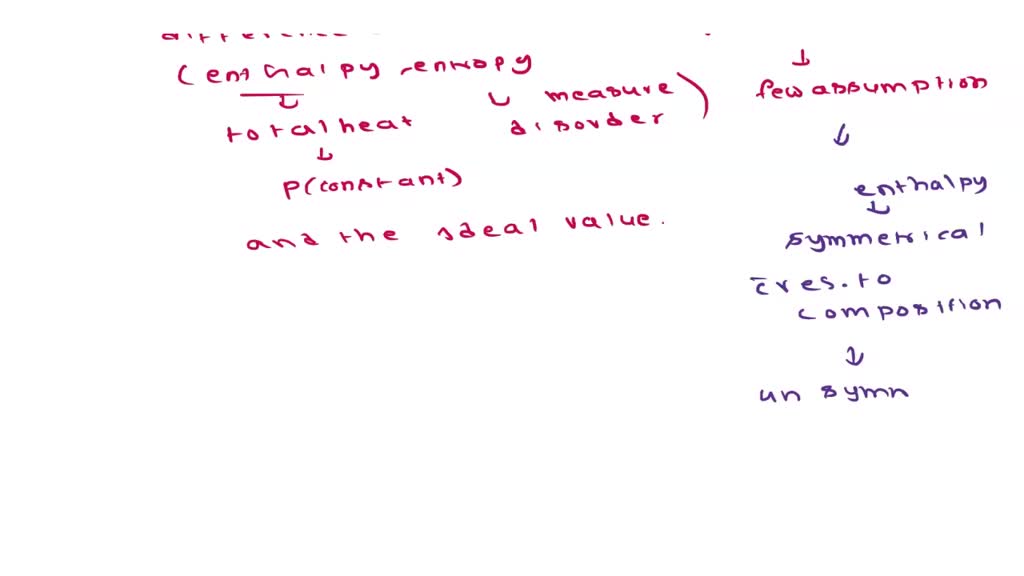 (enthalpy, entropy
measure
total heat
disorder
P(constant)
and the ideal value.
few assumption
enthalpy
symmetrical
c̄ res. to
composition
un symm